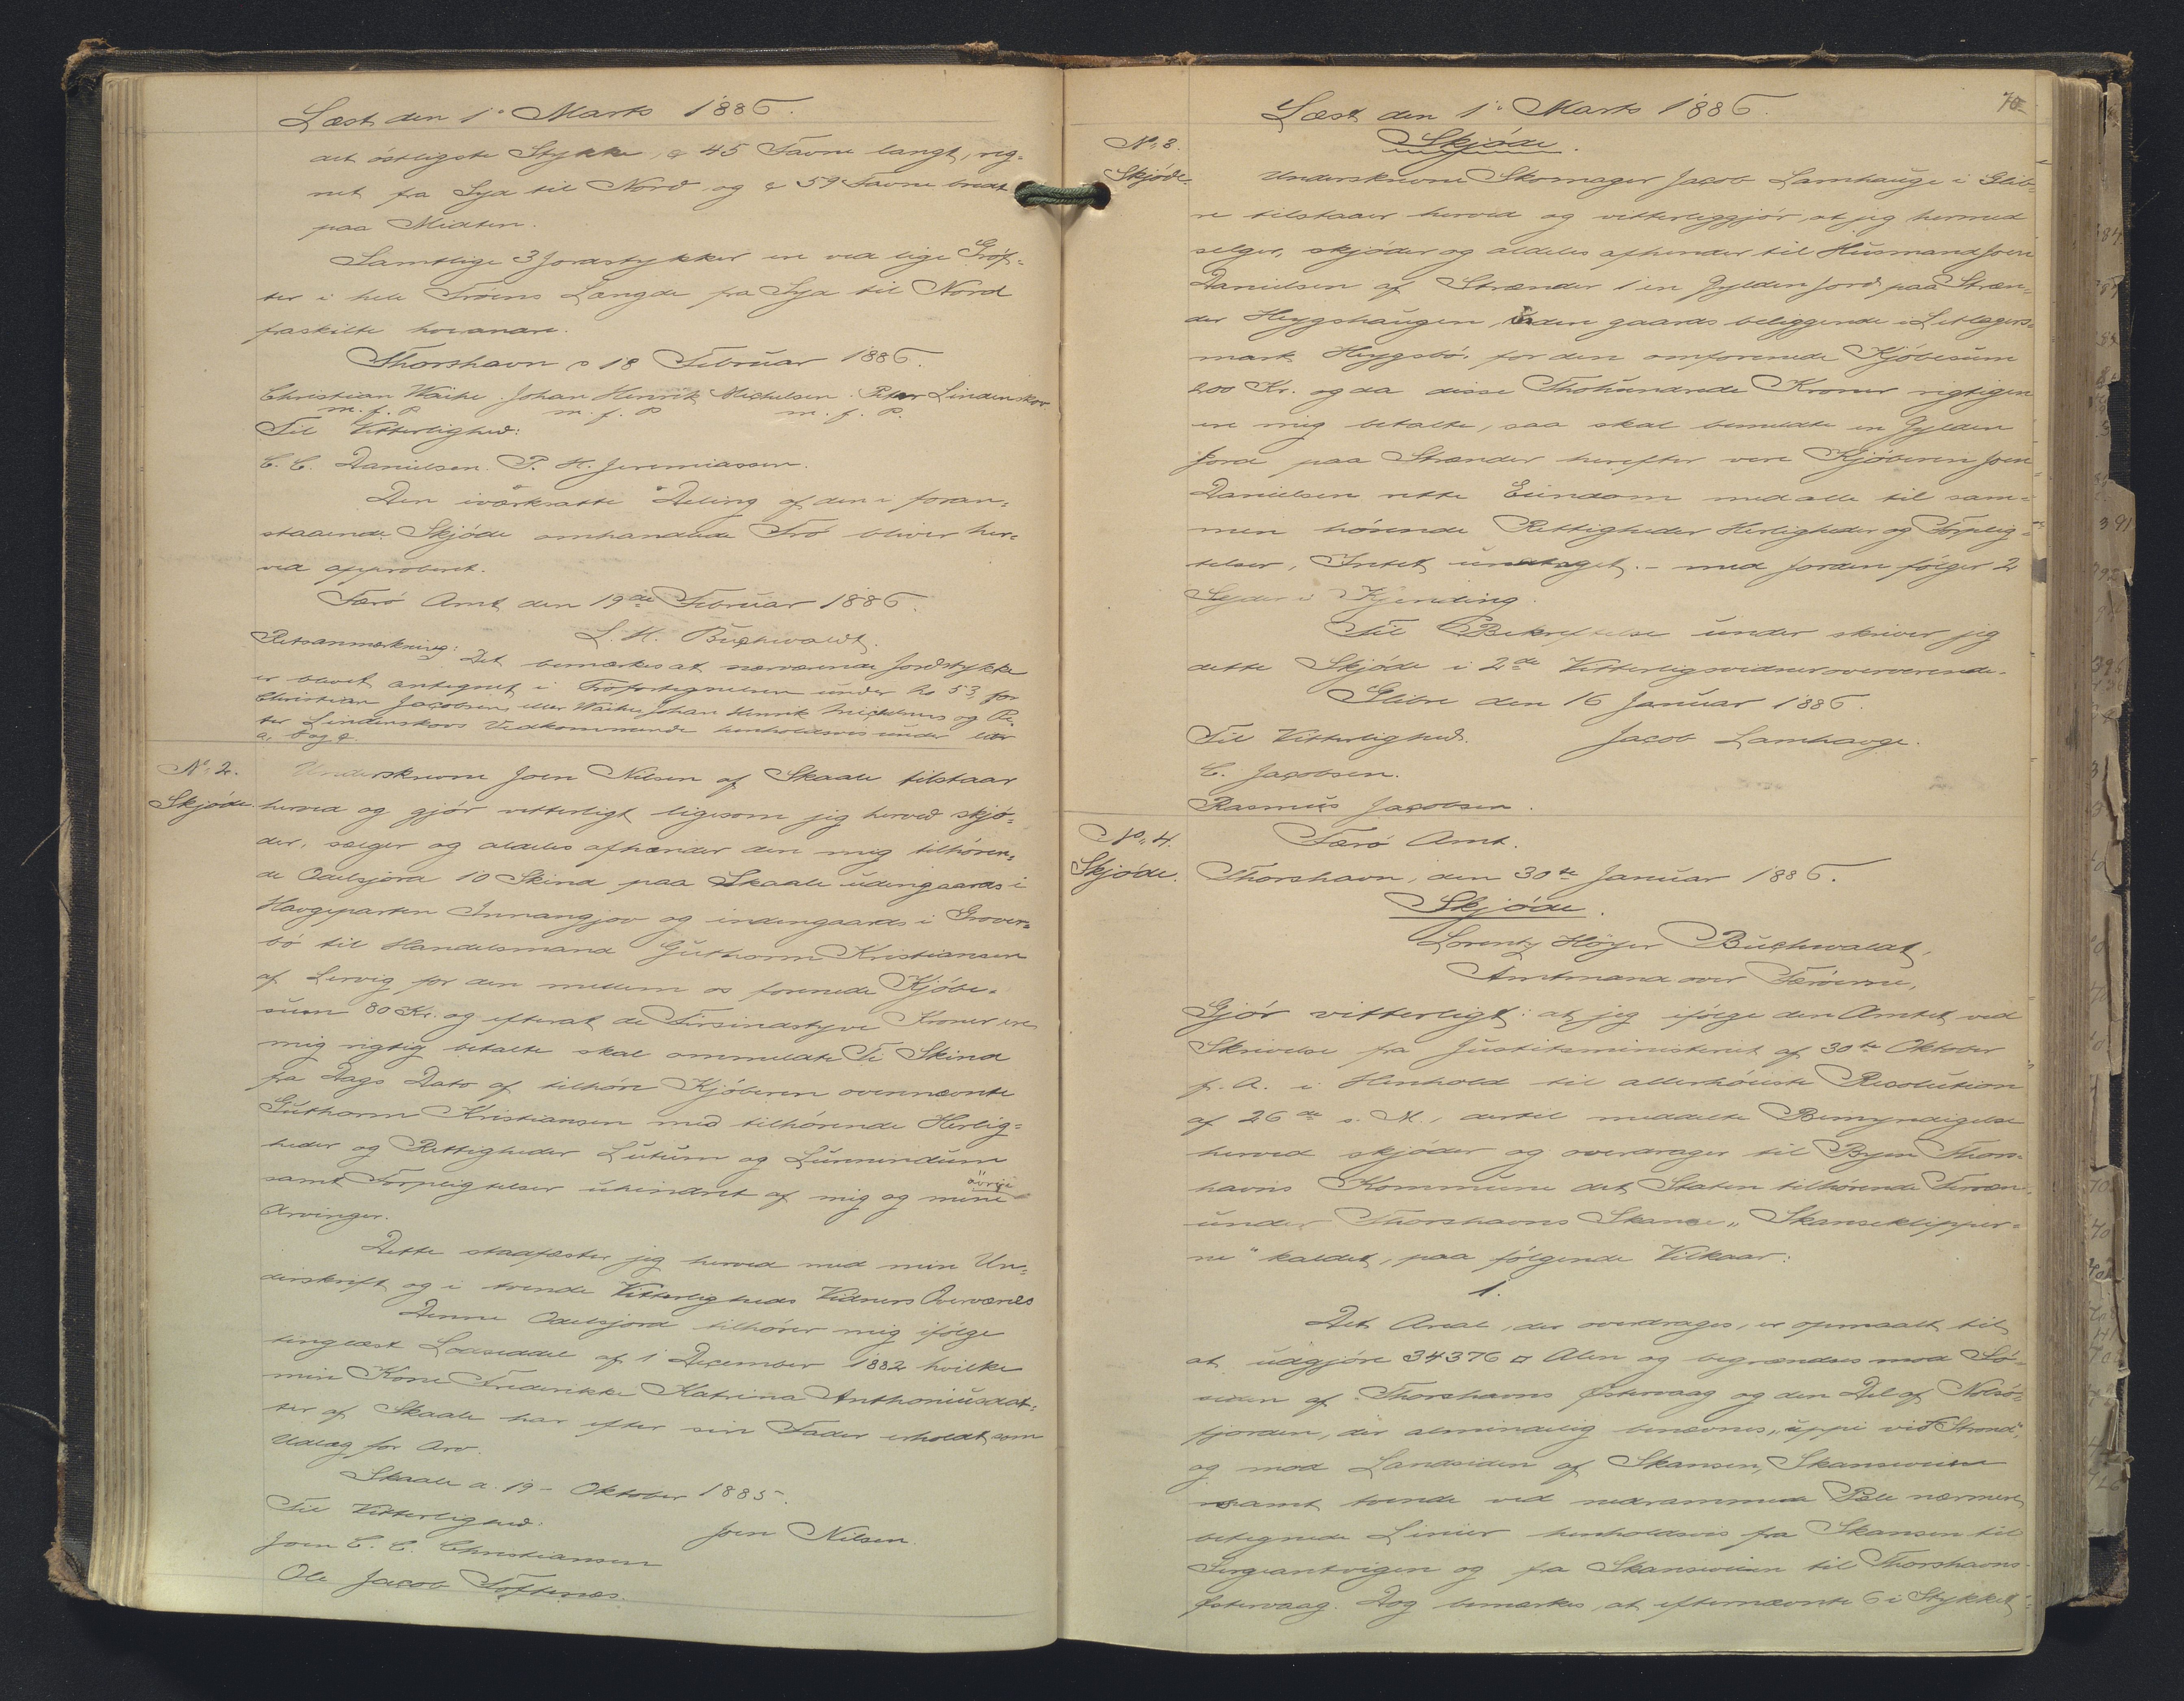 Læst den 1ᵒ Marts 1886.
det östligste Stykke, c 45 Favne langt, reg-
net fra Syd til Nord og c 59 Favne bredt
paa Midten.
Samtlige 3 Jordstykker ere ved lige Gröf-
ter i hele Tröens Længde fra Syd til Nord
fraskilte hverandre.
Thorshavn d 18 Februar 1886.
Christian Waihe. Johan Henrik Michelsen. Peter Lindenskov
m. f. P. m. f. P. m. f. P.
Til Vitterlighed:
C. C. Danielsen. P. H. Jeremiassen.
Den iværksatte Deling af den i foran-
staaende Skjöde omhandlede Trö bliver her-
ved approberet.
Færö Amt den 19de Februar 1886.
L. H. Buchwaldt.
Retsanmærkning: Det bemærkes at nærværende Jordstykke
er blevet antegnet i Tröfortegnelsen under No 53, for
Christian Jacobsens eller Waihes, Johan Henrik Michelsens og Pe-
ter Lindenskovs Vedkommende henholdsvis under litr
a, b og c.
No. 2.
Skjöde.
Underskrevne Joen Nilsen af Skaale tilstaar
herved og gjör vitterligt ligesom jeg herved skjö-
der, sælger og aldeles afhænder den mig tilhören-
de Odelsjord 10 Skind paa Skaale udengaards i
Havgeparten Innangjov og indengaards i Grover-
bö til Handelsmand Guthorm Kristiansen
af Lervig for den mellem os forenede Kjöbe-
sum 80 Kr. og efterat de Firsindstyve Kroner ere
mig rigtig betalte skal ommeldte Ti Skind
fra Dags Dato af tilhöre Kjöberen ovennævnte
Guthorm Kristiansen med tilhörende Herlig-
heder og Rettigheder Lutum og Lunnindum
samt Forpligtelser uhindret af mig og mine övrige
Arvinger.
Dette stadfæster jeg herved med min Un-
derskrift og i tvende Vitterligheds Vidners Overværelse
Denne Odelsjord tilhörer mig ifölge
tinglæst Lodseddel af 1 December 1882 hvilke
min Kone Frederikke Katrina Anthoniusdat-
ter af Skaale har efter sin Fader erholdt som
Udlæg for Arv.
Skaale d. 19 - Oktober 1885.
Til Vitterlighed: Joen Nilsen.
Joen C. C. Christiansen
Ole Jacob Toftenæs.
70
Læst den 1ᵒ Marts 1886.
No. 3.
Skjöde.
Skjöde.
Underskrevne Skomager Jacob Lamhauge i Glib-
re tilstaaer herved og vitterliggjör, at jeg hermed
selger, skjöder og aldeles afhender til Husmand Joen
Danielsen af Strænder 1 en Gylden Jord paa Stræn-
der Heygshaugen, uden gaards beliggende i Letlagers-
mark Heygsbö. for den omforenede Kjöbesum
200 Kr. og da disse Thohundrede Kroner rigtigen
ere mig betalte, saa skal bemeldte en Gylden
Jord paa Strænder herefter vere Kjöberen Joen
Danielsen rette Eiendom med alle til sam-
men hörende Rettigheder Herligheder og Forplig-
telser, Intet undtaget. - med Jorden fölger 2
Syder i Kjending.
Til Bekreftelse under skriver jeg
dette Skjöde i 2de Vitterligsvidner overværende.
Glibre den 16 Januar 1886.
Til Vitterlighed. Jacob Lamhauge.
C. Jacobsen.
Rasmus Jacobsen.
No. 4.
Skjöde.
Færö Amt.
Thorshavn, den 30te Januar 1886.
Skjöde.
Lorentz Höyer Buchwaldt,
Amtmand over Færöerne,
Gjör vitterligt: at jeg ifölge den Amtet ved
Skrivelse fra Justitsministeriet af 30te Oktober
f. A. i Henhold til allerhöieste Resolution
af 26de s. M., dertil meddelte Bemyndigelse
herved skjöder og overdrager til Byen Thors-
havns Kommune det Staten tilhörende Terræn
under Thorshavns Skanse „Skanseklipper-
ne" kaldet, paa fölgende Vilkaar:
1.
Det Areal, der overdrages, er opmaalt til
at udgjöre 34376 □ Alen og begrændses mod Sö-
siden af Thorshavns Östervaag og den Del af Nolsö-
fjorden, der almindelig benævnes „uppi við Strond",
og mod Landsiden af Skansen, Skanseveien
samt tvende ved nedrammede Pæle nærmere
betegnede Linier henholdsvis fra Skansen til
Sergeantvigen og fra Skanseveien til Thorshavns
Östervaag. Dog bemærkes, at efternævnte 6 i Stykket